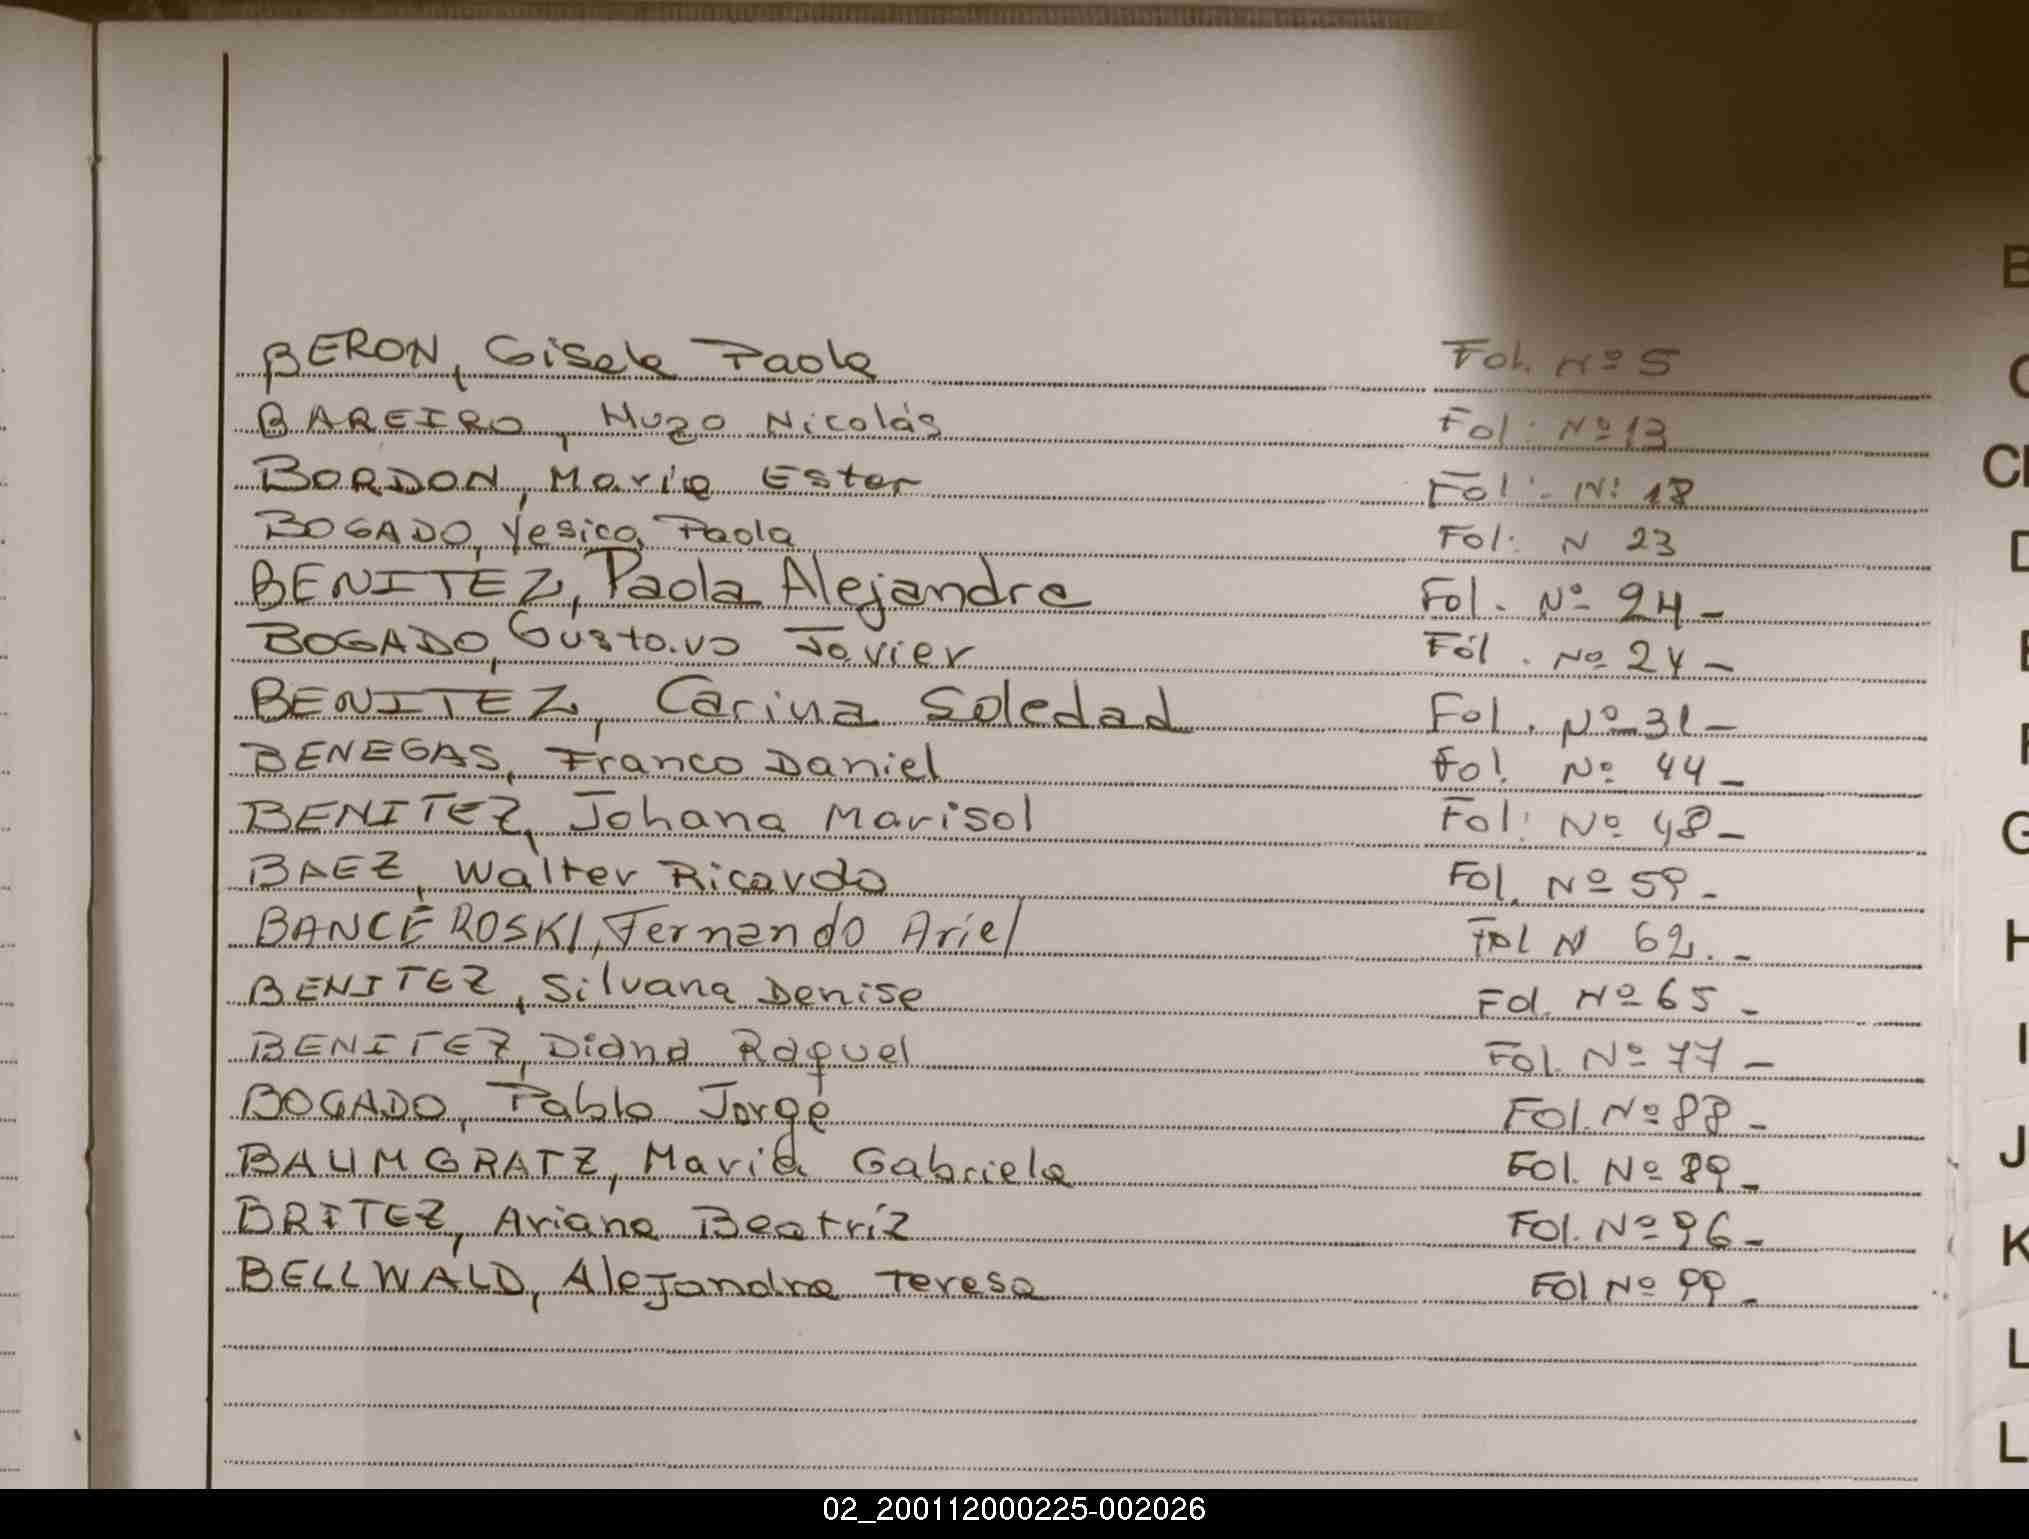 BERON, Gisela Paola Fol. Nº 5
BAREIRO, Hugo Nicolás Fol. Nº 13
BORDON, Maria Ester Fol. Nº 18
BOGADO, Yesica Paola Fol. N 23
BENITEZ, Paola Alejandra Fol. Nº 24 -
BOGADO, Gustavo Javier Fol. Nº 24 -
BENITEZ, Carina Soledad Fol. Nº 31 -
BENEGAS, Franco Daniel Fol. Nº 44 -
BENITEZ, Johana Marisol Fol. Nº 48 -
BAEZ, Walter Ricardo Fol. Nº 59 -
BANCEROSKI, Fernando Ariel Fol N 62. -
BENITEZ, Silvana Denise Fol. Nº 65 -
BENITEZ, Diana Raquel Fol. Nº 77 -
BOGADO, Pablo Jorge Fol. Nº 88 -
BAUMGRATZ, Maria Gabriela Fol. Nº 89 -
BRITEZ, Ariana Beatríz Fol. Nº 96 -
BELLWALD, Alejandra Teresa Fol Nº 99 -
B
C
D
G
H
I
J
K
L
L
02_200112000225-002026